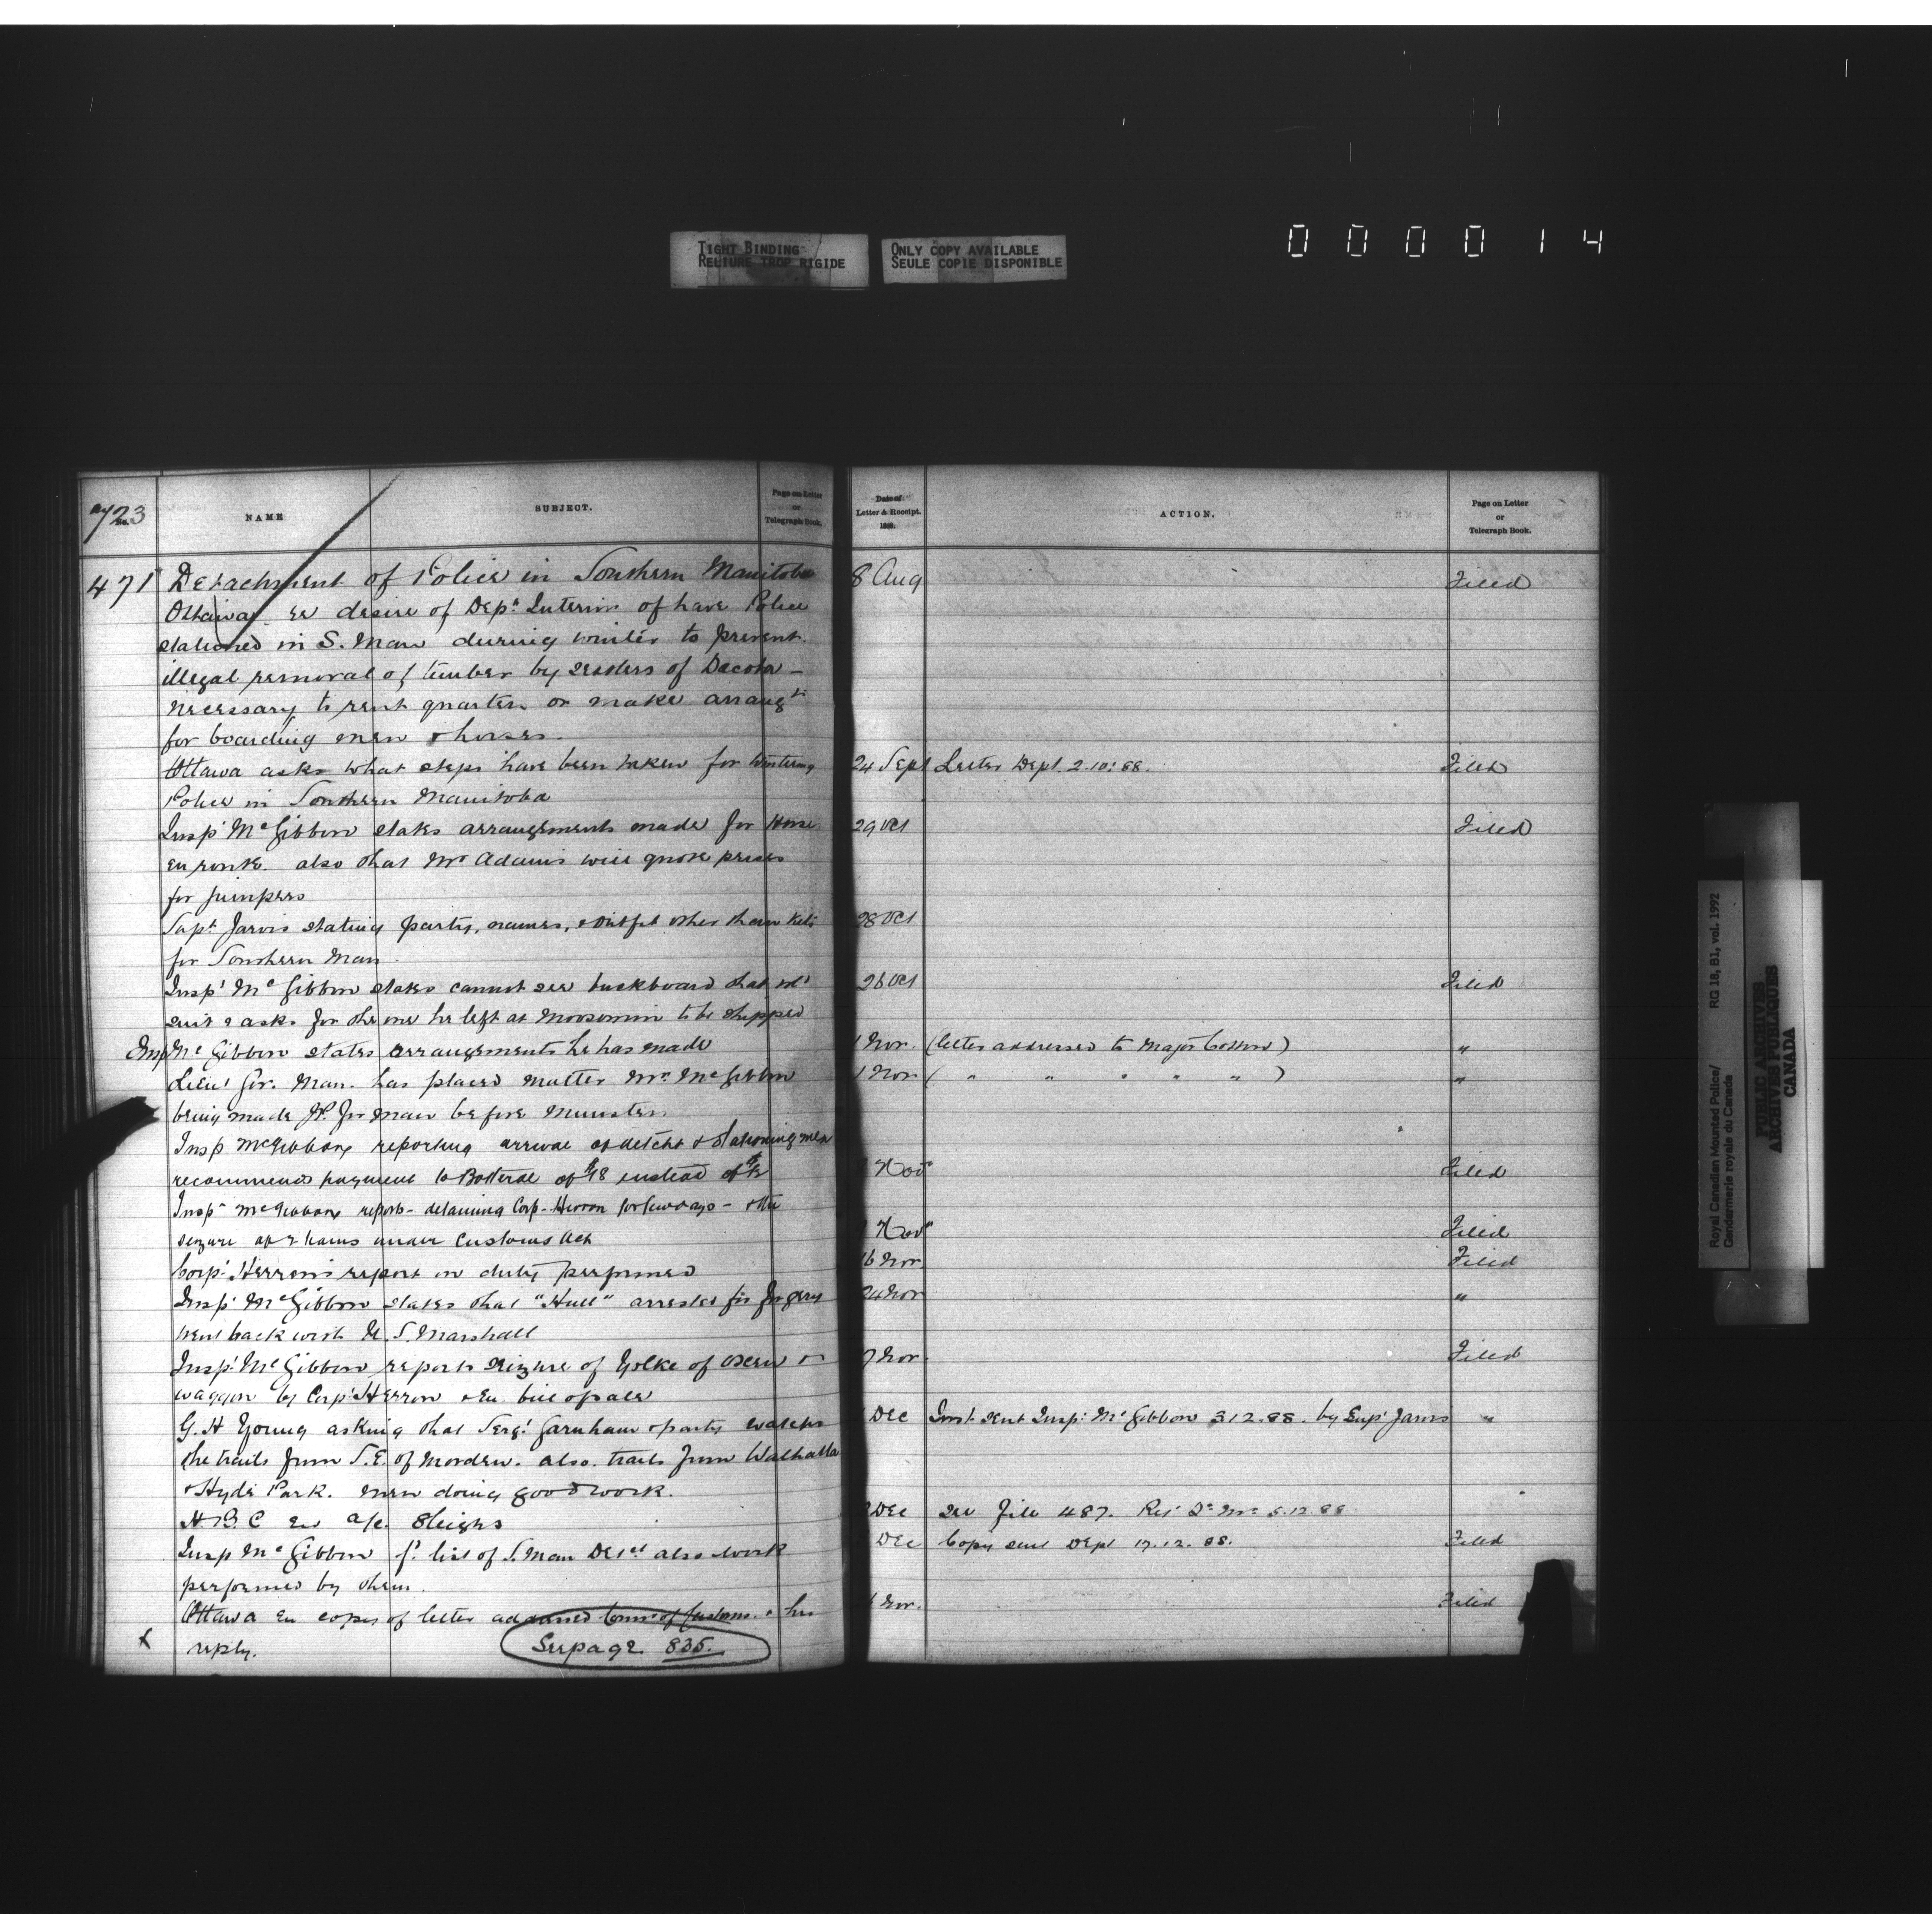 TIGHT BINDING
RELIURE TROP RIGIDE
ONLY COPY AVAILABLE
SEULE COPIE DISPONIBLE
0 0 0 0 1 4
723
No.
NAME
SUBJECT.
Page on Letter
or
Telegraph Book.
Date of
Letter & Receipt.
188
ACTION.
Page on Letter
or
Telegraph Book.
471 Detachment of Police in Southern Manitoba 8 Aug Filed
Ottawa re desire of Dept Interior of have Police
stationed in S. Man during winter to prevent
illegal removal of timber by settlers of Dacota -
necessary to rent quarters or make arrangts
for boarding men & horses
Ottawa asks what steps have been taken for wintering 24 Sept Letter Dept. 2.10.88. Filed
Police in Southern Manitoba
Inspr McGibbon states arrangements made for Horses 29 Oct Filed
en route. also that Mr Adams will quote prices
for jumpers
Supt Jarvis stating party, names, & outfit other than kits 28 Oct
for Southern Man.
Inspr McGibbon states cannot see buckboard that wd 26 Oct Filed
suit & asks for the one he left at Moosomin to be shipped
Insp McGibbon states arrangements he has made 1 Nov. (letter addressed to Major Cotton) "
Lieut Gov. Man. has placed matter Mr. McGibbon 1 Nov ( " " " " " ) "
being made JP. for Man before Minister.
Insp McGibbon reporting arrival of detcht & stationing men
recommends payment to Botterel of $18 instead of Nov Filed
Inspr McGibbon reports - detaining Corp - Herron for few days - & the
seizure of 2 hams under Customs Act Nov Filed
Corpl Herron's report on duty performed 16 Nov. Filed
Inspr McGibbon states that "Hull" arrested for forgery 24 Nov "
went back with U.S. Marshall
Inspr McGibbon reports seizure of Yolke of oxen & 7 Nov. Filed
waggon by Corpl Herron & En. bill of sale
G. H Young asking that Sergt Garnham & party watches Dec Inst. sent Inspr McGibbon 3.12.88. by Supt Jarvis "
the trails from S.E. of Morden. also. trails from Walhalla
& Hyde Park. men doing good work.
H.B.C En a/c. Sleighs Dec See File 487. 5.12.88
Insp McGibbon list of S. Man Detct also work Dec Copy sent Dept 17.12.88. Filed
performed by them.
Ottawa En copy of letter addressed Comr of Customs & his Nov. Filed
x reply. See page 835.
Royal Canadian Mounted Police/
Gendarmerie royale du Canada
RG 18, B1, vol. 1992
PUBLIC ARCHIVES
ARCHIVES PUBLIQUES
CANADA